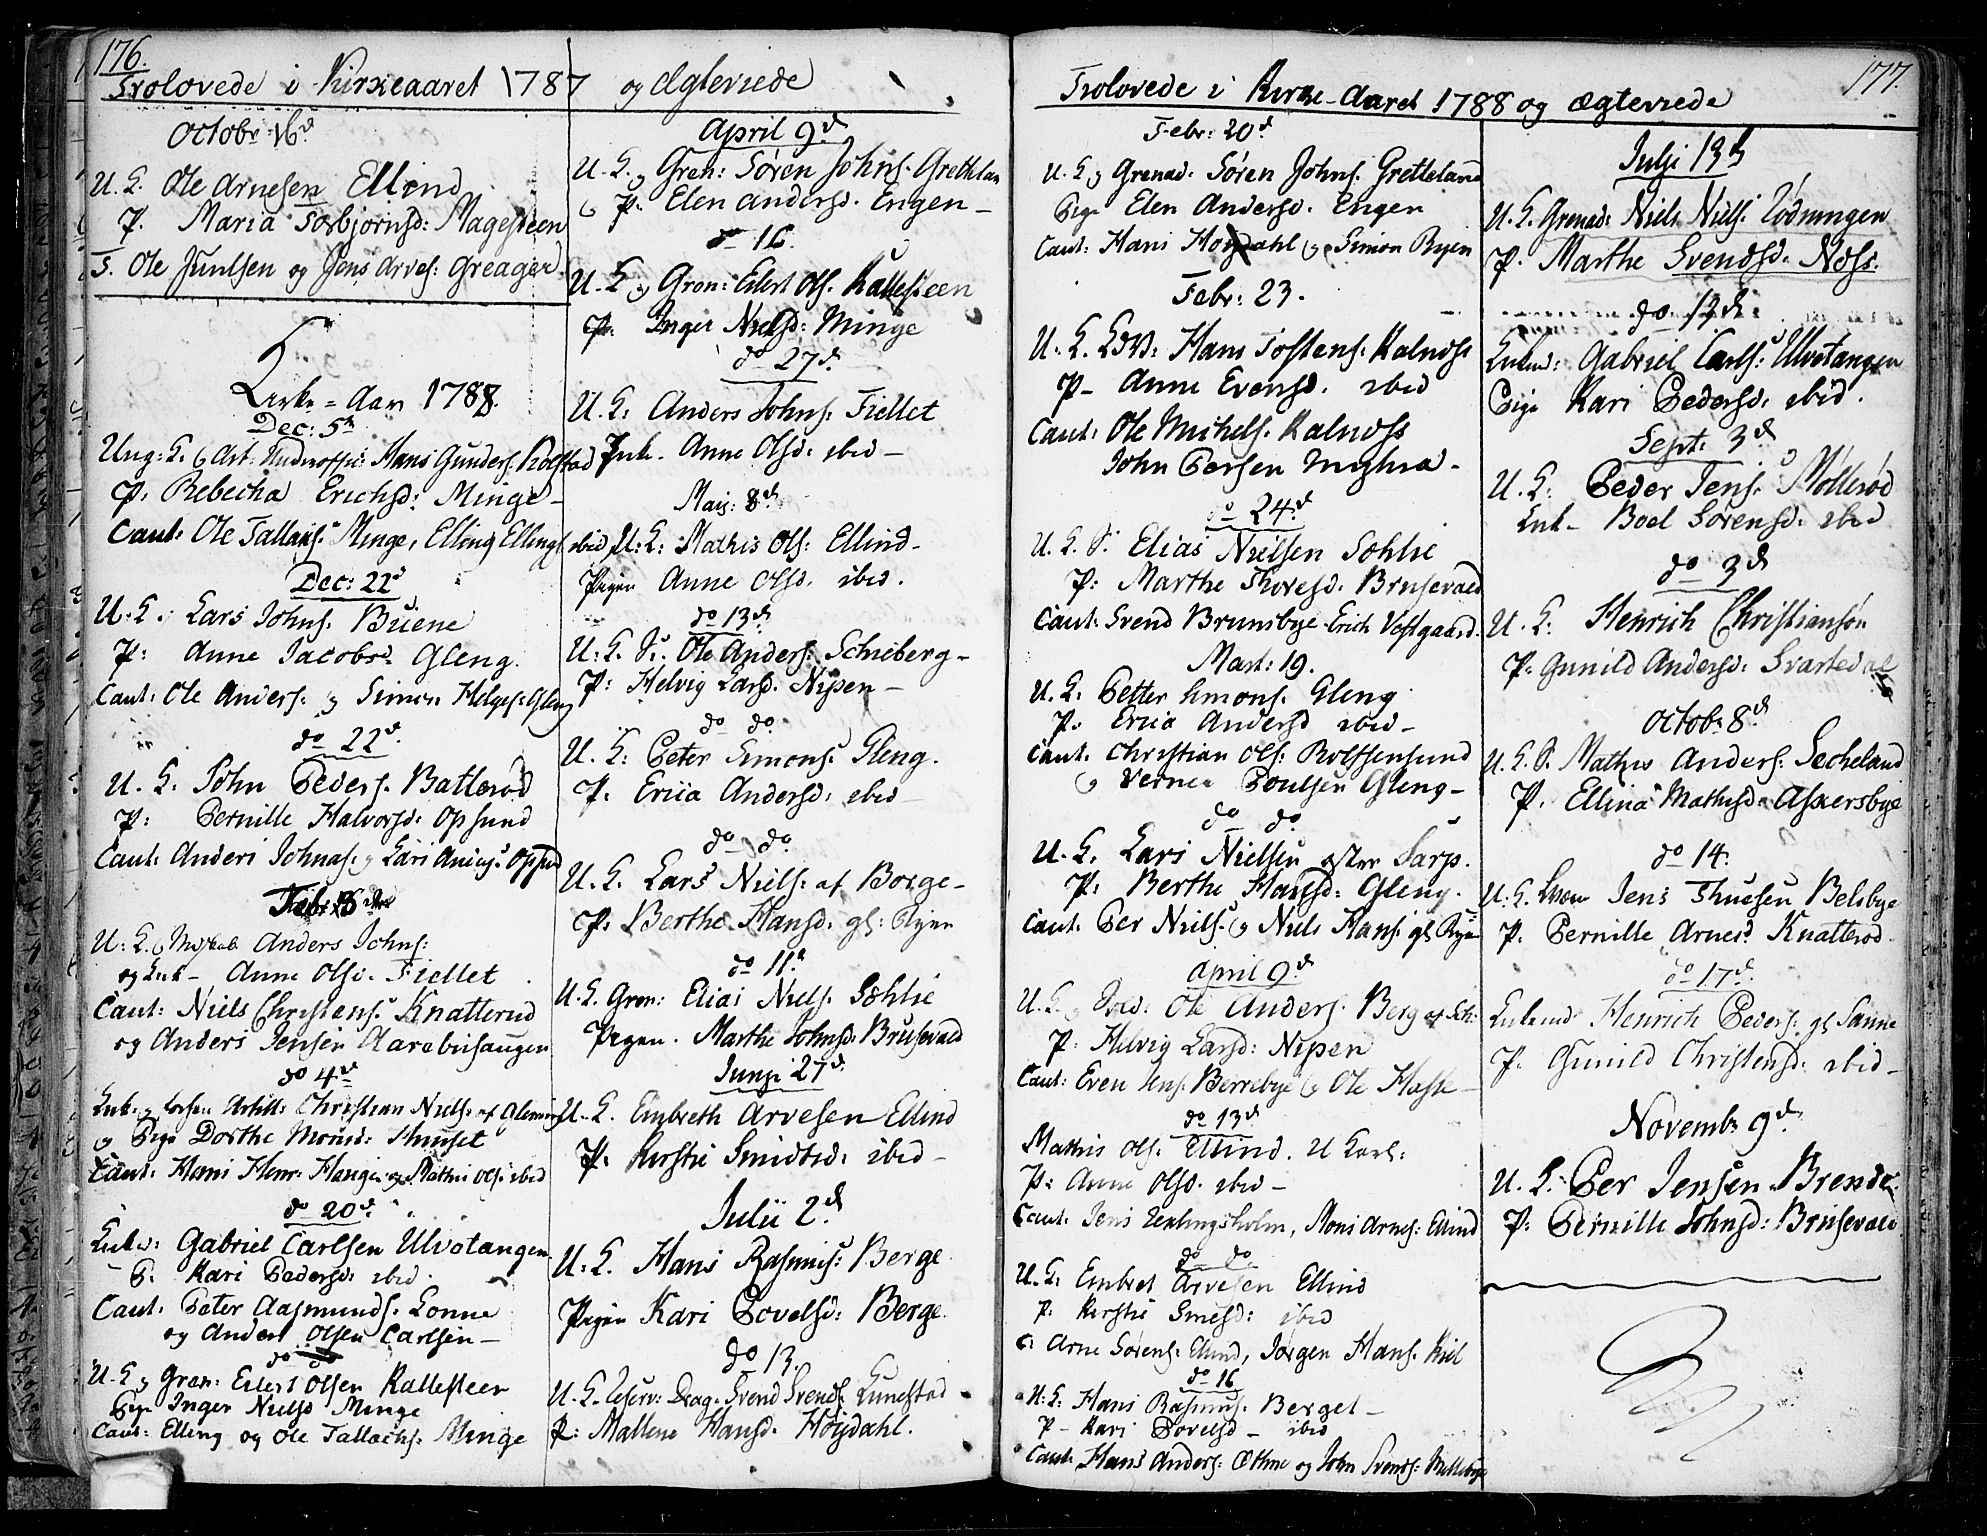 176.
Trolovede i Kirkeaaret 1787 og Ægteviede
Octobr: 16d
U. K. Ole Arnesen Ellind
P. Maria Torbjørnsd: Magesteen
F. Ole Juulsen og Jens Arves: Greager
Kirke-Aar 1788.
Dec: 5te
Ung: K. Hans Gunders: Rolstad
P. Rebecha Erichsd: Minge
Caut: Ole Tallaks: Minge, Elling Ellings: ibid
Dec: 22d
U. K. Lars Johns: Buene
P: Anne Jacobsd: Gleng.
Caut: Ole Anders: og Simon Helges: Gleng
do 22d.
U. K. John Peders: Batterød
P: Pernille Halvorsd: Opsund
Caut: Anders Johnas: og Lars Opsund
Febr:
U: K. Anders Johns:
og Enk- Anne Olsd. Fiellet
Caut: Niels Christens: Knatterud
og Anders Jensen Harabusaugen
do 4d
Enk: Christian Niels: af Glemmi
og Pige Dorthe Monsd: Thuset
Caut: Hans Henr: Hauge og Mathis Ols: ibid
do 20d.
Enkm: Gabriel Carlsen Ulvetangen
P. Kari Pedersd: ibid.
Caut: Peter Aasmunds: Lonne
og Anders Olsen Carlsen
do do
U. K. og Gren: Eilert Olsen Kallesteen
Pige Inger Nielsd Minge
Caut: Elling og Ole Tallachs: Minge
April 9d.
U. K. og Gren: Søren Johns: Gretteland
og P: Elen Andersd. Engen
do 16.
U. K. og Gren: Eilert Ols. Kallesteen
P: Inger Nielsd: Minge
do 27d.
U. K: Anders Johns: Fiellet
Enk. Anne Olsd: ibid
Maij: 8d
U: K: Mathis Ols: Ellind
Pigen Anne Olsd. ibid.
do 13d
U: K. S. Ole Anders: Schiberg
P: Helvig Larsd. Nipen
do do
U. K: Peter Simons: Gleng.
P. Ericia Andersd: ibid
do do
U. K. Lars Niels: af Borge
P: Berthe Hansd: gl: Ryen
do 11d.
U. K. Gren: Elias Niels. Sohlie
Pigen. Marthe Johnsd: Brusevald
Junji 27d.
U. K. Embreth Arvesen Ellind
P. Kirstie Smidtsd: ibid
Julii 2d
U. K. Hans Rasmus: Berge.
Pigen Kari Povelsd: Berge.
do 13.
U. K. reserv: Drag: Svend Svends: Lunestad
P: Mallene Hansd. Høysdahl.
177.
Trolovede i Kirke-Aaret 1788 og Ægteviede
Febr: 20d
U. K. og Grenad: Søren Johns. Gretteland
Pige Elen Andersd. Engen
Caut: Hans Høysdahl og Simon Ryen
Febr: 23.
U. K. Hans Tostens: Kalnæss
P- Anne Evensd. ibid
Caut: Ole Michels. Kalnæss
John Persen Inghra
do 24d.
U. K. S. Elias Nielsen Sohlie
P: Marthe Thoresd. Brusevald
Caut: Svend Brunsbye Erich Vestgaard.
Mart: 19.
U. K: Petter Simons. Gleng
P: Ericia Andersd ibid
Caut: Christian Ols: Rolfsensund
og Verner Poulsen Gleng
do do
U. K. Lars Nielsen øster Sarp.
P: Berthe Hansd: Gleng.
Caut: Per Niels. og Niels Hans: gl Ryen
April 9d
U. K. og Sold: Ole Anders. Berg
P. Helvig Larsd: Nipen
Caut: Even Jens. Berrebye og Ole Hasle
do 13d
Mathis Ols: Ellind. U Karl:
P: Anne Olsd. ibid
Caut: Jens, Mons Arnes: Ellind
do do
U. K: Embret Arvesen Ellind
P. Kirstie Smesd: ibid
C: Arne Sørens: Elund, Jørgen Hans. Kiil
do 16
U: K: Hans Rasmus. Berget
P- Kari Povelsd ibid
Caut: Hans Anders: Othne og John Svends:
Julji 13d
U. K. Grenad: Niels Niels: Lødningen
P. Marthe Svendsd. Næss.
do 13d
Enkm: Gabriel Carls: Ulvetangen
Pige Kari Pedersd: ibid.
Sept: 3d
U. K: Peder Jens: Møllerød
Enk- Boel Sørensd: ibid
do 3d
U. K: Henrich Christiansøn
P: Gunild Andersd: Svartedal
Octobr 8d.
U. K. S. Mathis Anders: Secheland
P. Ellina Mathisd: Askersbye
do 14.
U. K. Jens Thuesen Belsbye
P. Pernille Arnesd. Knatterød.
do 17d.
Enkemd Henrich Peders: gl Sanne
P. Gunild Christensd: ibid
Novembr 9d.
U. K. Per Jensen Brende.
P: Pernille Johnsd: Brusevald